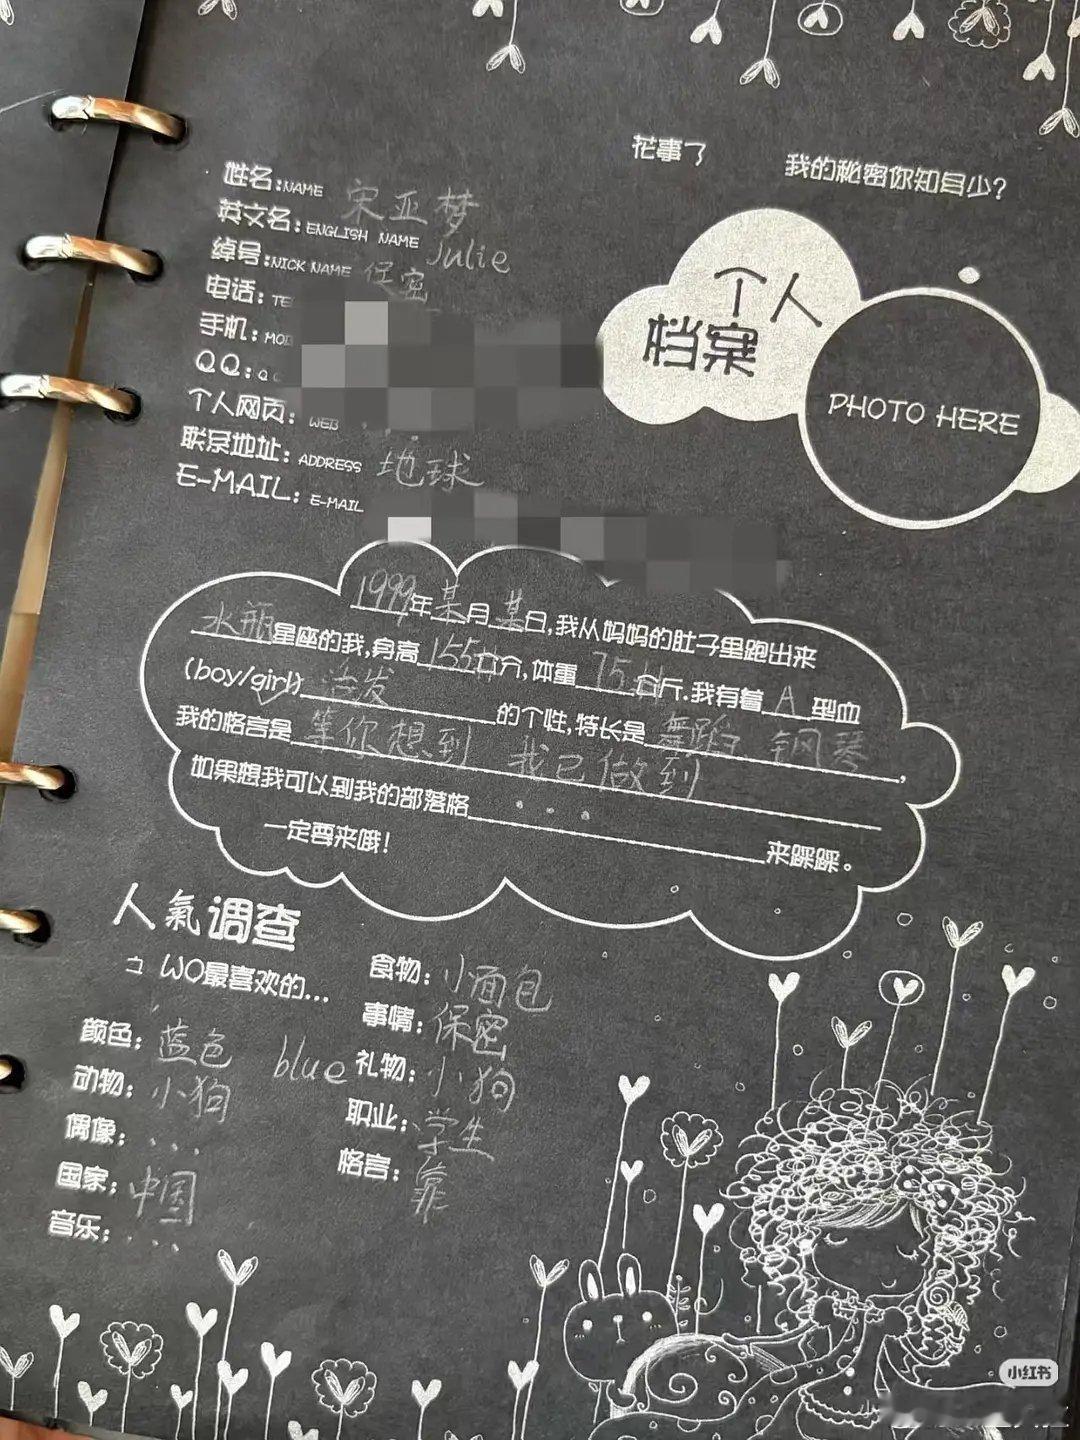 花事了 我的秘密你知多少?
个人
档案
PHOTO HERE
姓名:NAME 宋亚梦
英文名:ENGLISH NAME Julie
绰号:NICK NAME 保密
电话:TE
手机:MO
QQ:Q
个人网页:WEB
联系地址:ADDRESS 地球
E-MAIL:E-MAIL
1999年某月某日,我从妈妈的肚子里跑出来
水瓶星座的我,身高155公分,体重75公斤.我有着A型血
(boy/girl)活发的个性,特长是舞蹈 钢琴,
我的格言是等你想到 我已做到
如果想我可以到我的部落格...来踩踩。
一定要来哦!
人氣调查
WO最喜欢的...
颜色:蓝色 blue
动物:小狗
偶像:...
国家:中国
音乐:...
食物:小面包
事情:保密
礼物:小狗
职业:学生
格言:靠
小红书